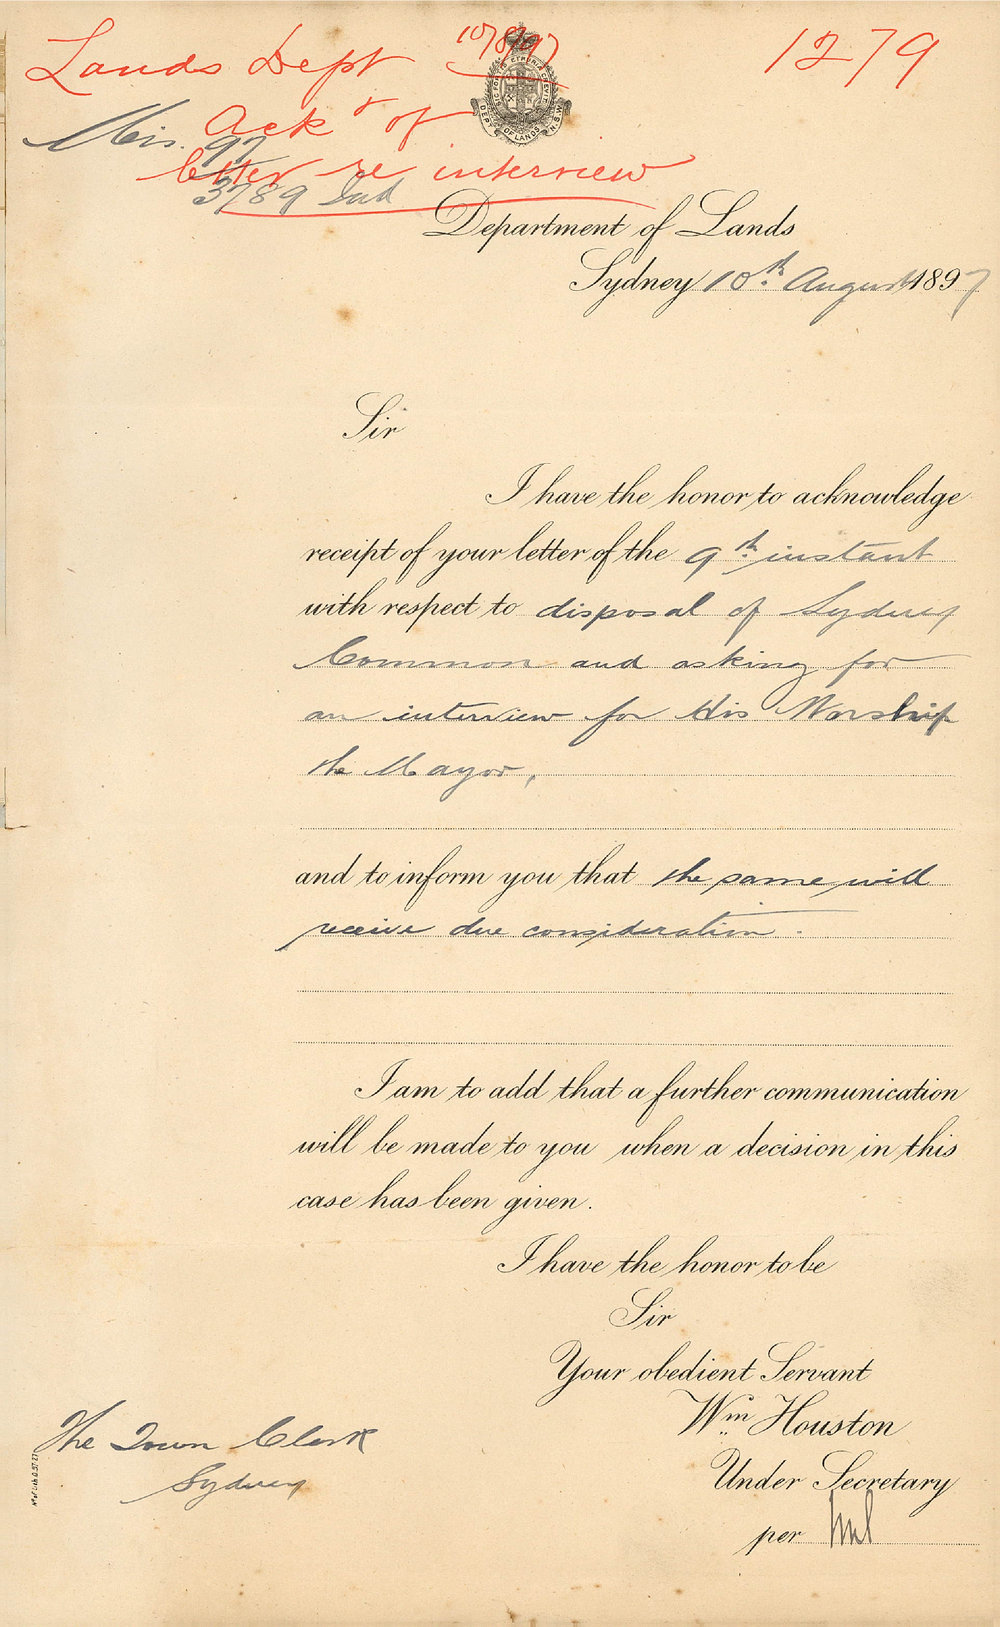 Lands Dept 10/8/97 1279
Ack r of
Mis. 97
letter re interview
3789 Ind
DEPT OF LANDS N.S.W.
Department of Lands
Sydney 10th August 1897
Sir
I have the honor to acknowledge
receipt of your letter of the 9th instant
with respect to disposal of Sydney
Common and asking for
an interview for His Worship
the Mayor,
and to inform you that the same will
receive due consideration.
I am to add that a further communication
will be made to you when a decision in this
case has been given.
I have the honor to be
Sir
Your obedient Servant
Wm Houston
Under Secretary
The Town Clerk
Sydney
per